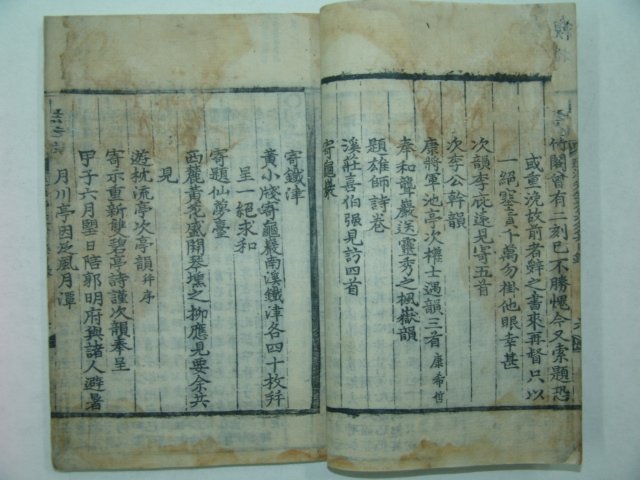 倚閣曾有二刻已不勝愧今又索題恐
或重浼故前者辭之書來再督只以
一絕塞責千萬勿掛他眼幸甚
次韻李庇遠見寄五首
次李公幹韻
康將軍池亭次權士遇韻三首 康希哲
奉和聾巖送靈秀之楓嶽韻
題雄師詩卷
溪莊喜伯强見訪四首
寄題
寄鐵津
黃小牋寄龜巖南溪鐵津各四十枚幷
呈一絕求和
寄題仙夢臺
西麓黃花盛開琴壎之柳應見要余共
見
遊枕流亭次亭韻 幷序
寄示重新雙碧亭詩謹次韻奉呈
甲子六月望日陪郭明府與諸人避暑
月川亭因泛風月潭